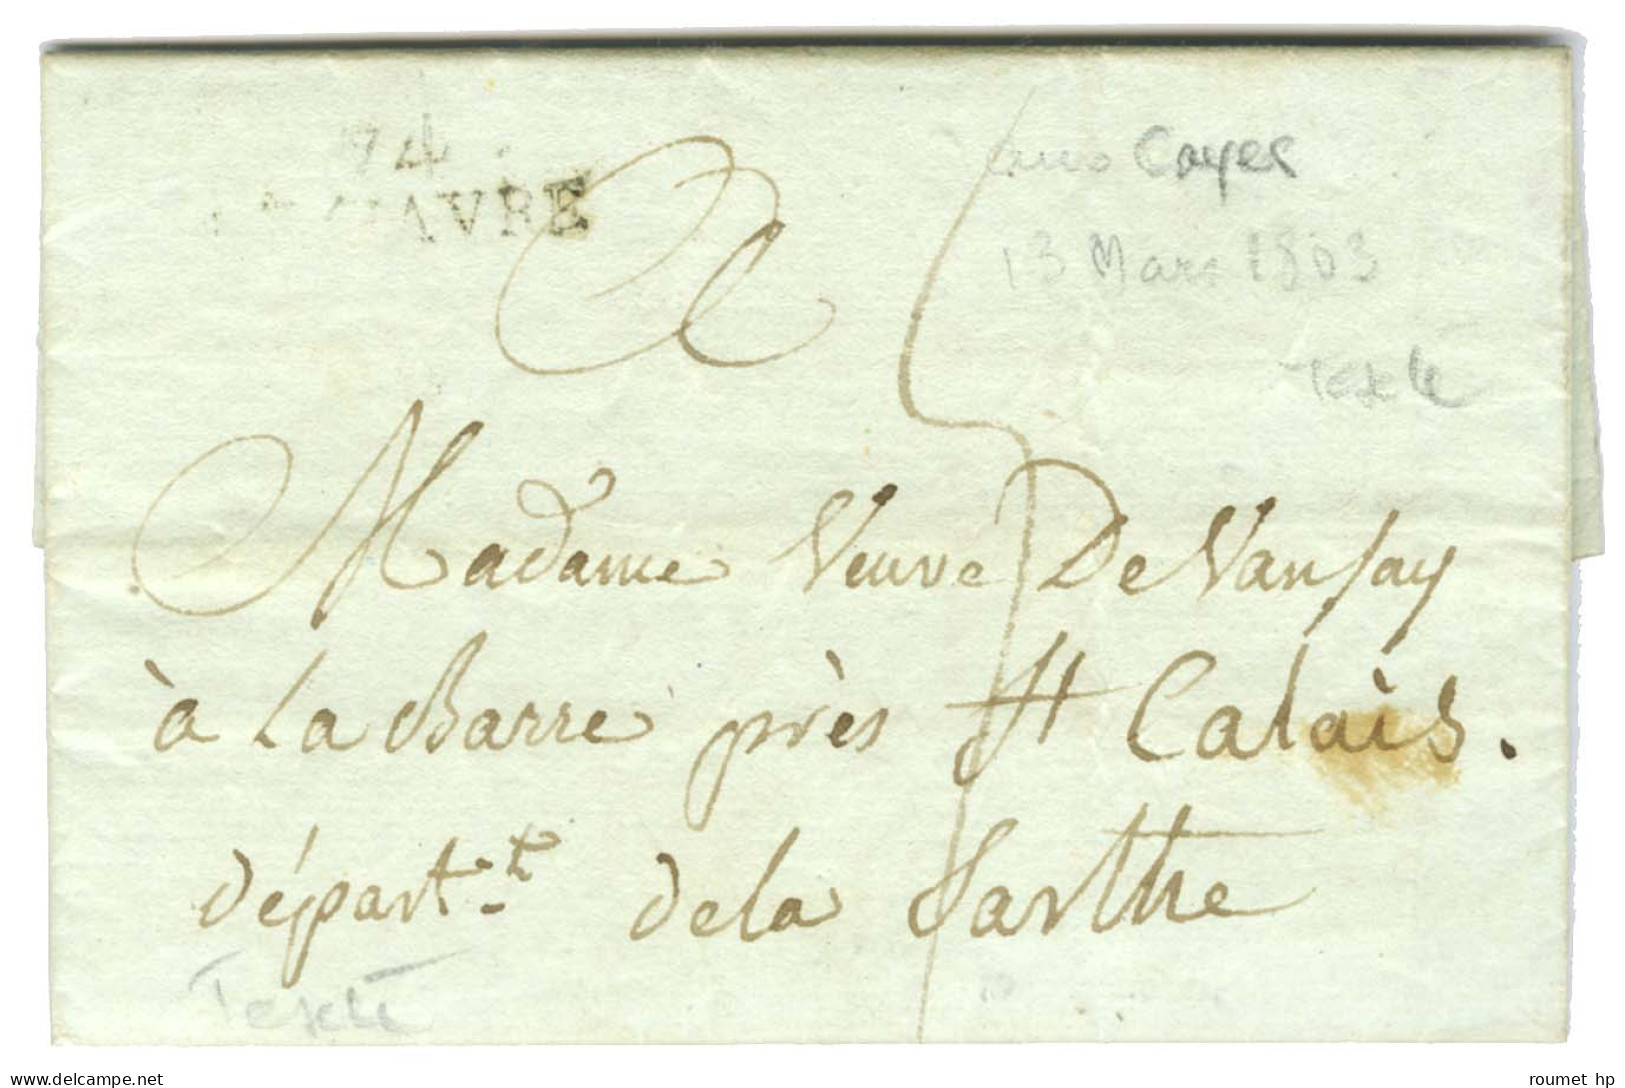 74
HAVRE
aux Cayes
13 Mars 1803
Texte
A
Madame Veuve De Vansay
à La Barre près St Calais.
départ.t de la Sarthe
Texte
delcampe.net
roumet hp